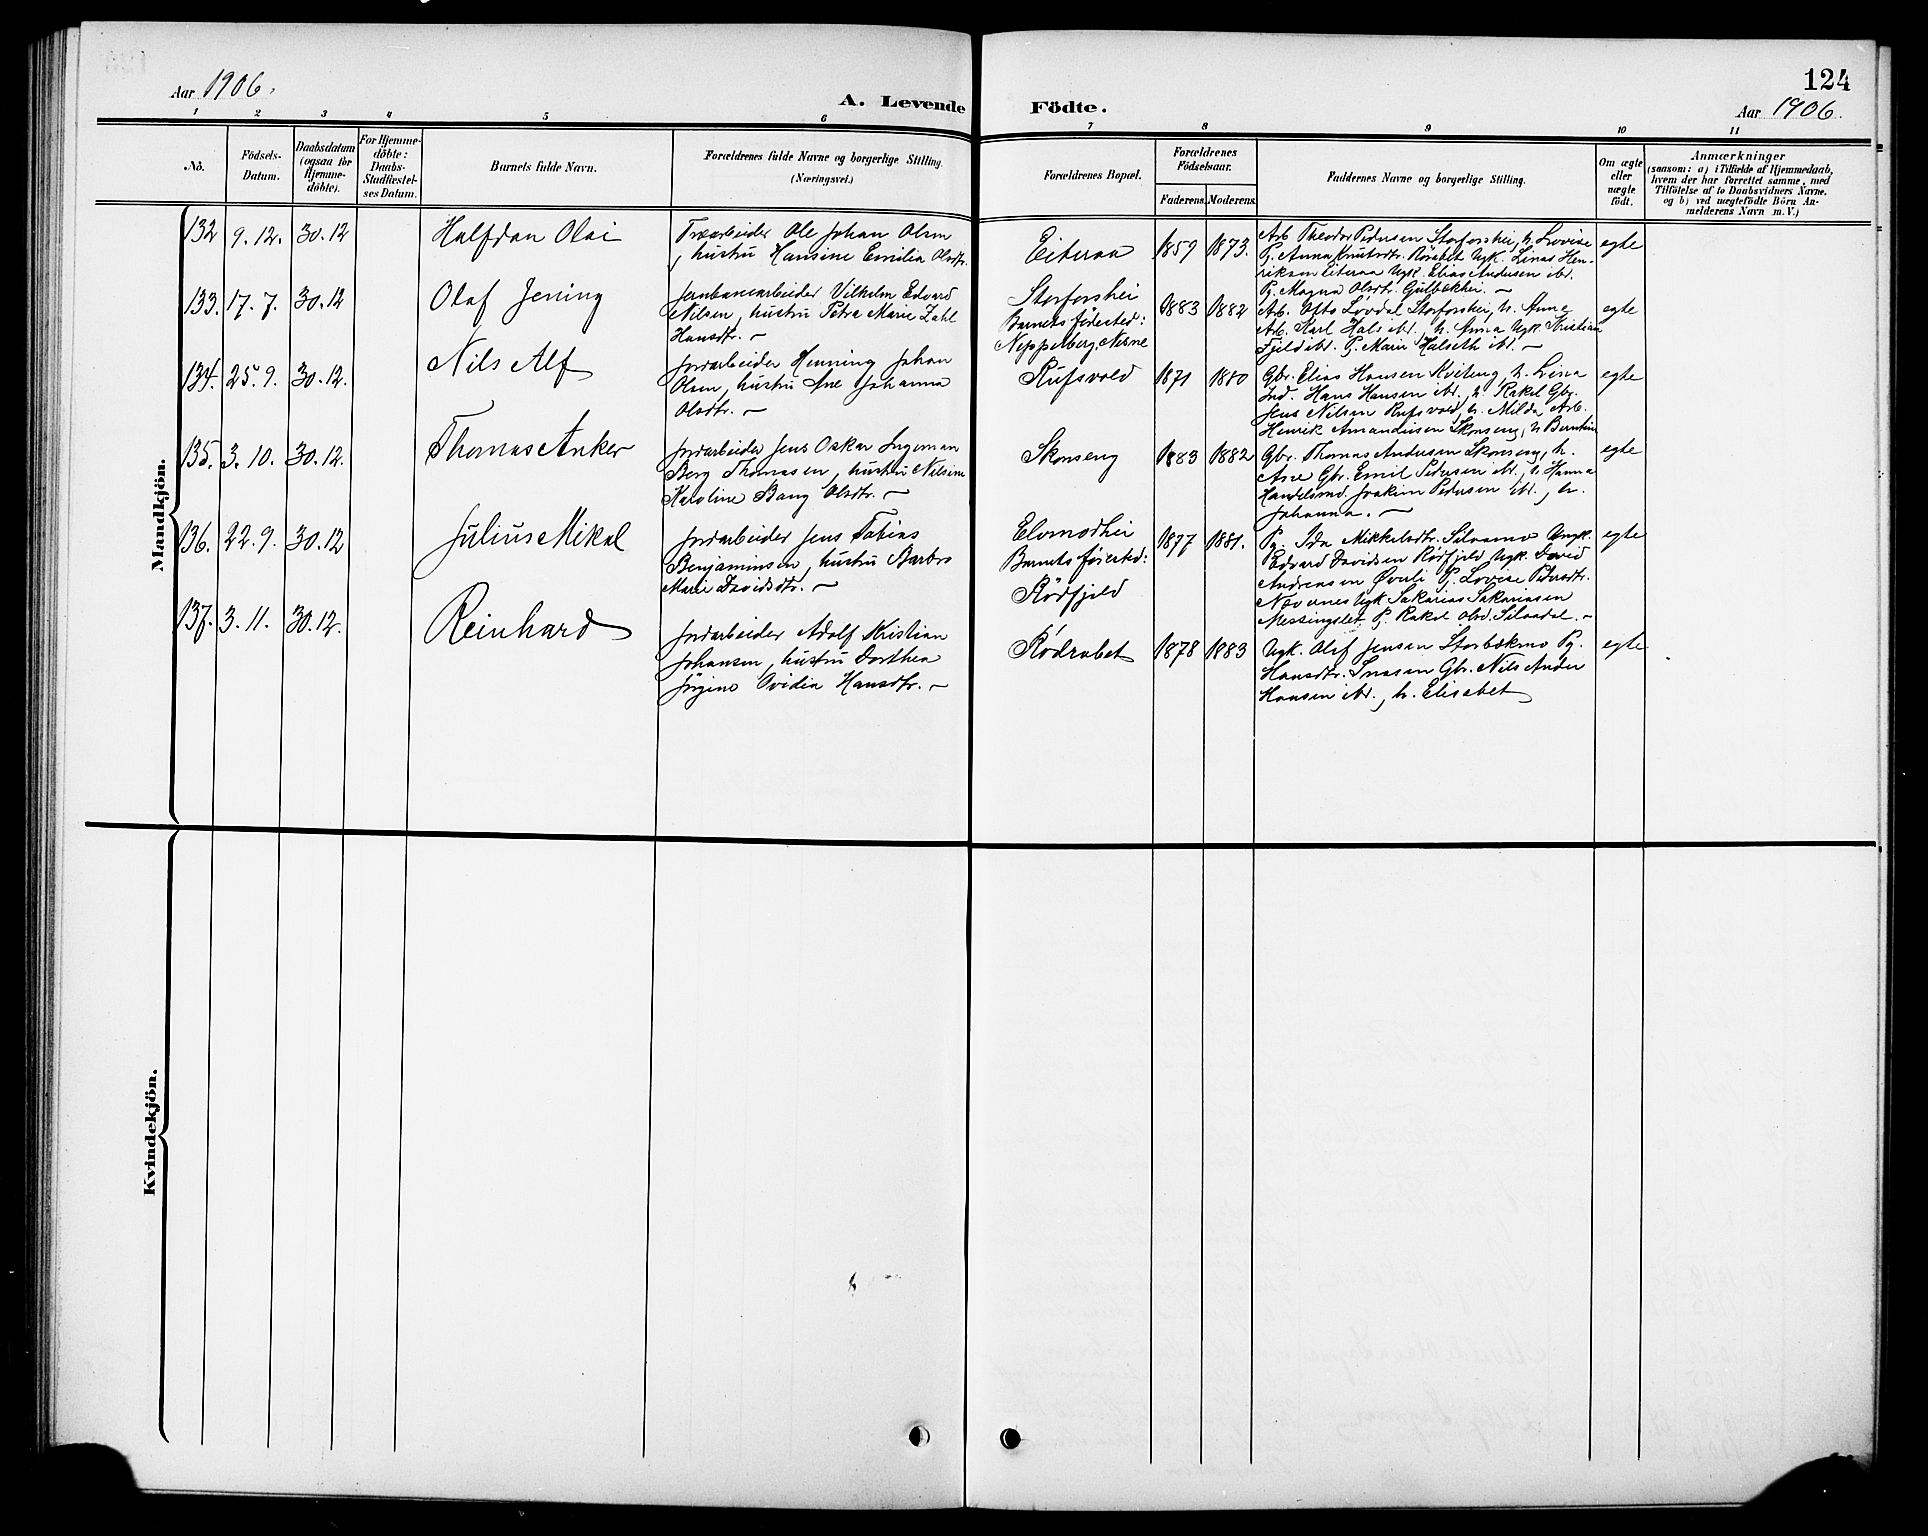 124
Aar 1906.
A. Levende Födte.
Aar 1906.
1 2 3 4 5 6 7 8 9 10 11
No.
Födsels-
Datum.
Daabsdatum
(ogsaa for
Hjemme-
döbte).
For Hjemme-
döbte:
Daabs-
Stadfæstel-
ses Datum.
Barnets fulde Navn.
Forældrenes fulde Navne og borgerlige Stilling.
(Næringsvei.)
Forældrenes Bopæl.
Forældrenes
Födselsaar.
Faderens. Moderens.
Faddernes Navne og borgerlige Stilling.
Om ægte
eller
uægte
födt.
Anmærkninger
(saasom: a) i Tilfælde af Hjemmedaab,
hvem der har forrettet samme, med
Tilföielse af to Daabsvidners Navne.
og b) ved uægtefödte Börn An-
melderens Navn m. V.)
Mandkjön.
132 9.12. 30.12 Halfdan Olai
Træarbeider Ole Johan Olsen
, hustru Hansine Emilia Olsdtr.
Eiteraa 1859 1873.
Arb. Theodor Pedersen Storforshei, h. Lovise
Pg. Anna Knutsdtr. Rörabet Ugk. Linas Hen-
riksen Eiteraa Ugk. Elias Andersen ibd.
Pg. Magna Olsdtr. Gulbækhei. —
egte
133. 17.7. 30.12 Olaf Jening
Jernbanearbeider Vilhelm Edvard
Nilsen, hustru Petra Marie Zahl
Hansdtr. —
Storforshei
Barnets födested:
Nepperberg, Nesne
1883 1882
Arb. Otto Lövdal Storforshei, h. Anna
Arb. Karl Hals ibd., h. Anna Ugk Kristian
Fjeld ibd. Pg. Marie Halseth ibd. —
egte
134. 25.9. 30.12. Nils Alf
Jordarbeider Henning Johan
Olsen, hustru Ane Johanna
Olsdtr. —
Rufsvold 1871 1880
Gbr. Elias Hansen Kviteng, h. Lina
Ind. Hans Hansen ibd., h. Rakel Gbr.
Jens Nilsen Rufsvold, h. Milda, Arb.
Henrik Amandusen Skonseng, h Berntine
egte
135. 3.10. 30.12. Thomas Anker
Jordarbeider Jens Oskar Ingeman
Berg Thomasen, hustru Nilsine
Karoline Bang Olsdtr. —
Skonseng 1883 1882
Gbr. Thomas Andersen Skonseng, h.
Ane Gbr. Emil Pedersen ibd., h. Hanna
Handelsmd. Joakim Pedersen ibd., h.
Johanna. —
egte
136. 22.9. 30.12 Julius Mikal
Jordarbeider Jens Tobias
Benjaminsen, hustru Barbro
Marie Davidsdtr. —
Elvmodhei
Barnets födested:
Rödfjeld
1877 1881.
Pg. Ida Mikkelsdtr. Silvamo Ungk.
Edvard Davidsen Rödfjeld, Ugk. David
Andreasen Øverli Pg. Lovise Pedersdtr.
Nævernes Ugk Sakarias Sakariassen
Messingslet Pg. Rakel Olsd. Silvadal. —
egte
137. 3.11. 30.12. Reinhard
Jordarbeider Adolf Kristian
Johansen, hustru Dorthea
Jörgine Ovidia Hansdtr. —
Rödrabet 1878 1883
Ugk. Olef Jensen Storbækmo Pg.
Hansdtr. Snasen Gbr. Nils Ander
Hansen ibd., h. Elisabet
egte
Kvindekjön.